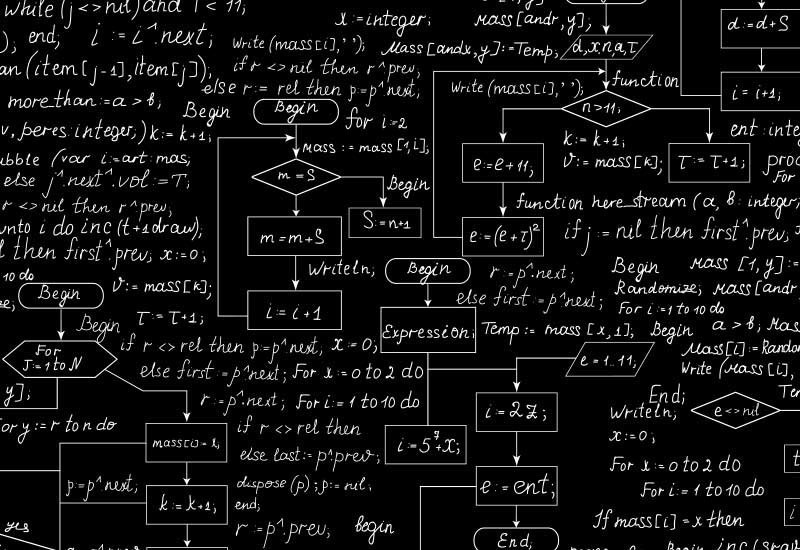 while (j <> nil) and i < 11;
x:=integer;
mass[andr, y];
d:=d+S
), end;
i := i^.next;
write (mass[i], ' ');
Mass[andx,y]:=Temp;
d,x,n,a,τ
an (item [j-1], item[j]);
if r <> nel then r^.prev;
function
else r:= rel then p:=p^.next;
write (mass[i],' ');
more_than:=a > b,
Begin
Begin
for i:=2
n>11,
i= i+1,
v, peres:integer;) k:= k+1;
k:= k+1;
ent : inte
mass := mass [1,i];
ubble (var i:=art: mas,
m = S
e:=e+11;
v:= mass[k];
τ:= τ+1;
proc
else j^.next^.vol:=T;
Begin
For
r <> nil then r^.prev,
function here_stream (a, b: integer,
unto i do inc (t+1draw);
S:=n+1
m=m+S
e:=(e+τ)²
if j := nil then first^.prev,
l then first^.prev; x:=0;
writeln,
Begin
r:=p^.next;
Begin
mass [1, y] :=
10 do
Begin
v:= mass[k];
else first:=p^.next;
Randomize; mass[andr
i:= i+1
For i:=1 to 10 do
τ:= τ+1;
Begin
Expression;
Temp:= mass [x,1];
Begin
a > b, mas
For
J:=1 to N
if r <> rel then p:=p^.next; x:=0;
e=1..11;
mass[i]:=Random
else first:=p^.next; For x:=0 to 2 do
Write (mass[i],
y];
r:=p^.next; For i:=1 to 10 do
i=2z;
End;
writeln;
e<>nil
or y:=r to n do
mass[i]=l,
if r <> rel then
i=5⁷+x;
x:=0;
else last:= p^.prev;
For x:=0 to 2 do
p:=p^.next;
k:= k+1;
dispose (p); p:= nil,
e:=ent;
For i:=1 to 10 do
end;
yes
r:=p^.prev;
begin
End,
If mass[i] = x then